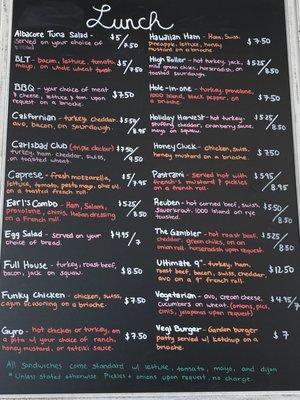 Lunch
Albacore Tuna Salad -
served on your choice of
bread
$5/7.50
BLT - bacon, lettuce, tomato,
mayo, on whole wheat toast
$5/7.50
BBQ - your choice of meat
? cheese, lettuce & tom upon
request on a brioche.
$7.50
Californian - turkey, cheddar,
avo, bacon, on sourdough.
$5.50/8.95
Carlsbad Club (triple decker)
turkey, ham, cheddar, swiss,
on toasted wheat.
$7.50/4.50
Caprese - fresh mozzarella,
lettuce, tomato, pesto mayo, olive oil
on a toasted french roll
$5/7.50
Earl's Combo - Ham, Salami,
provolone, chips, Italian dressing
on a French roll.
$5.25/8.50
Egg Salad - served on your
choice of bread.
$4.95/7
Full House - turkey, roast beef,
bacon, jack on squaw.
$8.50
Funky Chicken - chicken, swiss,
cajun seasoning on a brioche.
$7.50
Gyro - hot chicken or turkey, on
a pita w/ your choice of ranch,
honey mustard, or tzatziki sauce.
$7.50
Hawaiian Ham - Ham, Swiss,
Pineapple, lettuce, honey
mustard on a brioche.
$7.50
High Roller - hot turkey, jack,
mild green chiles, horseradish, on
toasted sourdough.
$5.25/8.50
Hole-in-one - turkey, provolone,
1000 island, black pepper, on
a brioche.
$7.50
Holiday Harvest - hot turkey,
cheddar, cranberry sauce,
mayo on squaw.
$5.25/8.50
Honey Cluck - Chicken, swiss,
honey mustard on a brioche.
$7.50
Pastrami - served hot with
french's mustard & pickles
on a french roll.
$5.95/8.95
Reuben - hot corned beef, swiss,
sauerkraut, 1000 island on rye
toasted.
$5.25/8.50
The Gambler - hot roast beef,
cheddar, green chiles, on an
onion roll, horseradish upon request.
$5.25/8.50
Ultimate 9" - turkey, ham,
roast beef, bacon, swiss, cheddar,
avo on a 9" french roll.
$12.50
Vegetarian - avo, cream cheese,
cucumbers on wheat (onions, pics,
jalapenos upon request)
$4.95/7
Vegi Burger - Garden burger
patty served w/ ketchup on a
brioche.
$7
All sandwiches come standard w/ lettuce, tomato, mayo, and dijon
* Unless stated otherwise. Pickles & onions upon request, no charge.